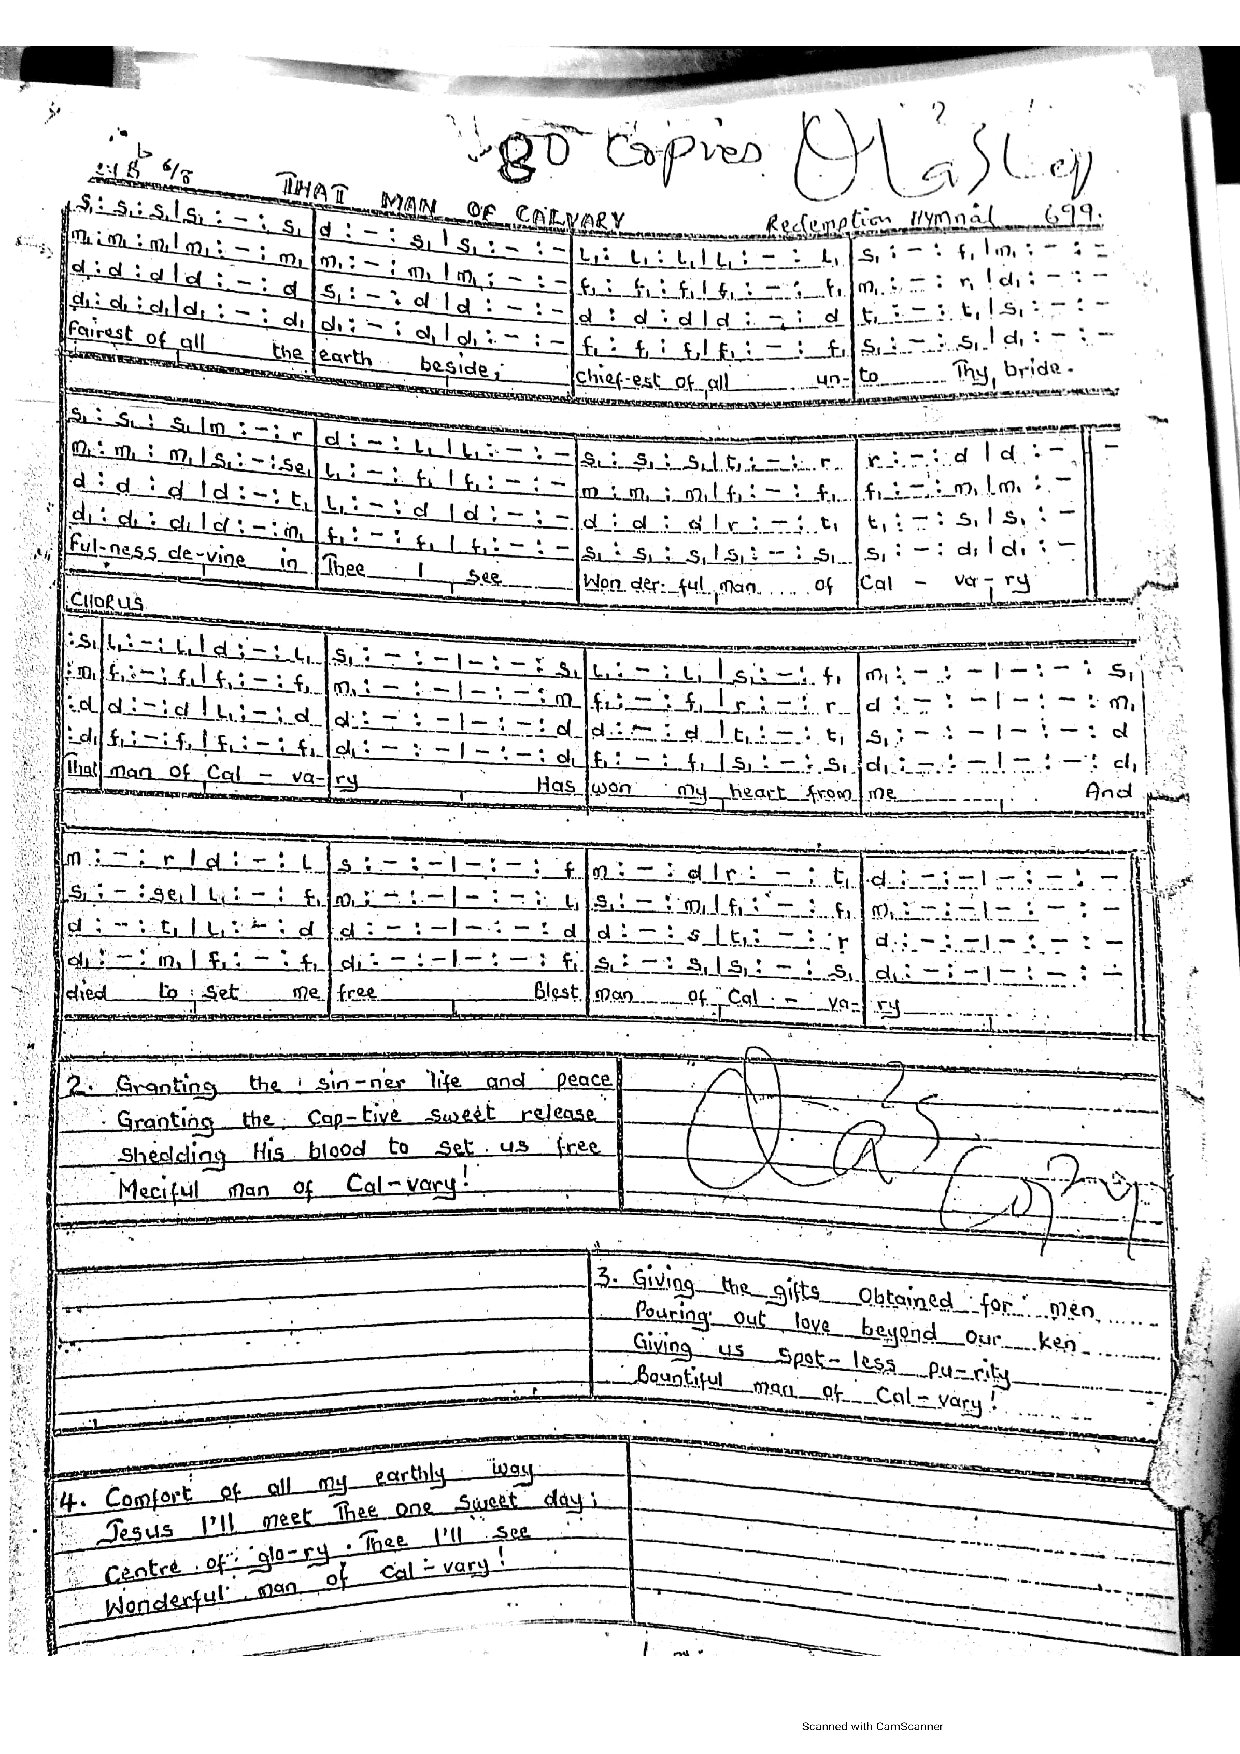 80 Copies
B♭ 6/8 THAT MAN OF CALVARY Redemption Hymnal 699.
s₁ : s₁ : s₁ | s₁ : – : s₁ | d : – : s₁ | s₁ : – : – | l₁ : l₁ : l₁ | l₁ : – : l₁ | s₁ : – : f₁ | m₁ : – : –
m₁ : m₁ : m₁ | m₁ : – : m₁ | m₁ : – : m₁ | m₁ : – : – | f₁ : f₁ : f₁ | f₁ : – : f₁ | m₁ : – : r₁ | d₁ : – : –
d : d : d | d : – : d | s₁ : – : d | d : – : – | d : d : d | d : – : d | t₁ : – : t₁ | s₁ : – : –
d₁ : d₁ : d₁ | d₁ : – : d₁ | d₁ : – : d₁ | d₁ : – : – | f₁ : f₁ : f₁ | f₁ : – : f₁ | s₁ : – : s₁ | d₁ : – : –
Fairest of all the earth beside, chief-est of all un- to Thy bride.
s₁ : s₁ : s₁ | m : – : r | d : – : l₁ | l₁ : – : – | s₁ : s₁ : s₁ | t₁ : – : r | r : – : d | d : – –
m₁ : m₁ : m₁ | s₁ : – : se₁ | l₁ : – : f₁ | f₁ : – : – | m : m₁ : m₁ | f₁ : – : f₁ | f₁ : – : m₁ | m₁ : –
d : d : d | d : – : t₁ | l₁ : – : d | d : – : – | d : d : d | r : – : t₁ | t₁ : – : s₁ | s₁ : –
d₁ : d₁ : d₁ | d : – : m₁ | f₁ : – : f₁ | f₁ : – : – | s₁ : s₁ : s₁ | s₁ : – : s₁ | s₁ : – : d₁ | d₁ : –
Ful-ness de-vine in Thee I see Won der-ful man of Cal - va - ry
CHORUS
: s₁ | l₁ : – : l₁ | d : – : l₁ | s₁ : – : – | – : – : s₁ | l₁ : – : l₁ | s₁ : – : f₁ | m₁ : – : – | – : – : s₁
: m₁ | f₁ : – : f₁ | f₁ : – : f₁ | m₁ : – : – | – : – : m | f₁ : – : f₁ | r : – : r | d : – : – | – : – : m₁
: d | d : – : d | l₁ : – : d | d : – : – | – : – : d | d : – : d | t₁ : – : t₁ | s₁ : – : – | – : – : d
: d₁ | f₁ : – : f₁ | f₁ : – : f₁ | d₁ : – : – | – : – : d₁ | f₁ : – : f₁ | s₁ : – : s₁ | d₁ : – : – | – : – : d₁
That man of Cal - va - ry Has won my heart from me And
m : – : r | d : – : l | s : – : – | – : – : f | m : – : d | r : – : t₁ | d : – : – | – : – : –
s₁ : – : se₁ | l₁ : – : f₁ | m₁ : – : – | – : – : l₁ | s₁ : – : m₁ | f₁ : – : f₁ | m₁ : – : – | – : – : –
d : – : t₁ | l₁ : – : d | d : – : – | – : – : d | d : – : s | t₁ : – : r | d : – : – | – : – : –
d₁ : – : m₁ | f₁ : – : f₁ | d₁ : – : – | – : – : f₁ | s₁ : – : s₁ | s₁ : – : s₁ | d₁ : – : – | – : – : –
died to set me free Blest man of Cal - va - ry
2. Granting the sin-ner life and peace
Granting the Cap-tive sweet release
Shedding His blood to set us free
Meciful man of Cal-vary!
3. Giving the gifts Obtained for men
Pouring out love beyond our ken
Giving us spot-less pu-rity
Bountiful man of Cal-vary!
4. Comfort of all my earthly way
Jesus I'll meet Thee one sweet day;
Centre of glo-ry Thee I'll see
Wonderful man of Cal-vary!
Scanned with CamScanner